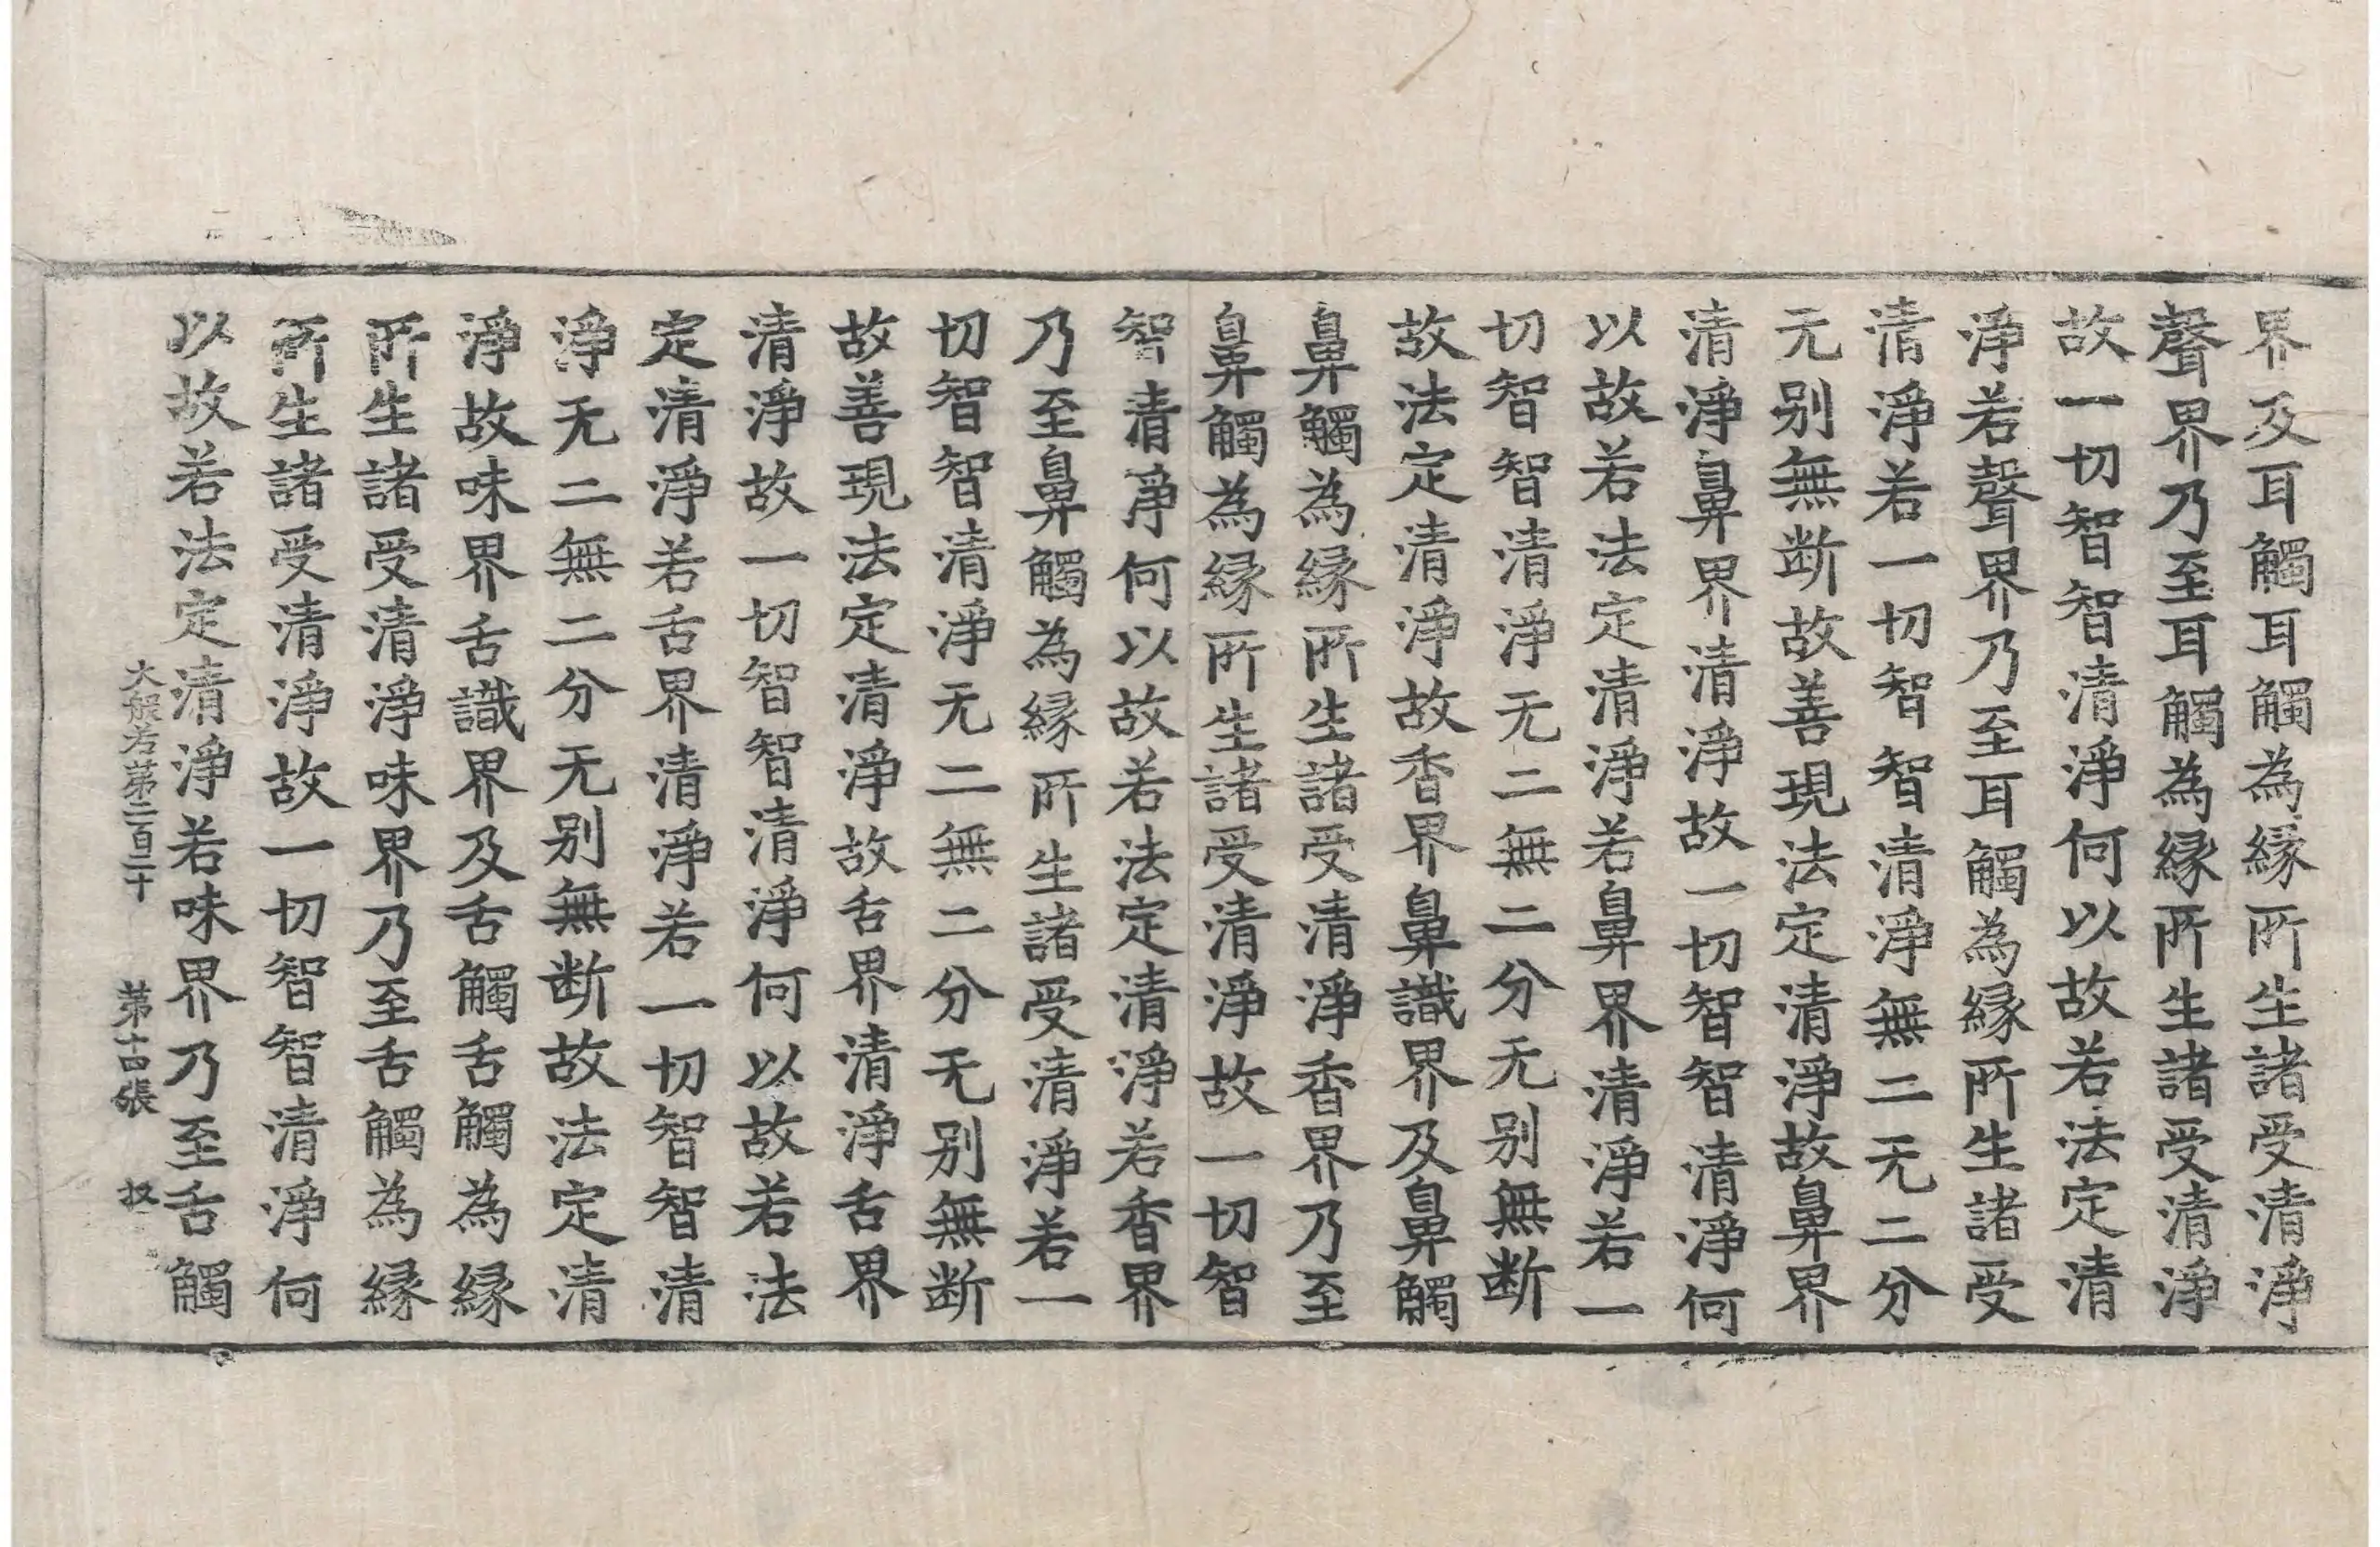 界及耳觸耳觸為縁所生諸受清淨
聲界乃至耳觸為縁所生諸受清淨
故一切智智清淨何以故若法定清
淨若聲界乃至耳觸為縁所生諸受
清淨若一切智智清淨無二无二分
无别無断故善現法定清淨故鼻界
清淨鼻界清淨故一切智智清淨何
以故若法定清淨若鼻界清淨若一
切智智清淨无二無二分无别無断
故法定清淨故香界鼻識界及鼻觸
鼻觸為縁所生諸受清淨香界乃至
鼻觸為縁所生諸受清淨故一切智
智清淨何以故若法定清淨若香界
乃至鼻觸為縁所生諸受清淨若一
切智智清淨无二無二分无别無断
故善現法定清淨故舌界清淨舌界
清淨故一切智智清淨何以故若法
定清淨若舌界清淨若一切智智清
淨无二無二分无别無断故法定清
淨故味界舌識界及舌觸舌觸為縁
所生諸受清淨味界乃至舌觸為縁
所生諸受清淨故一切智智清淨何
以故若法定清淨若味界乃至舌觸
大般若第二百二十 第十四張